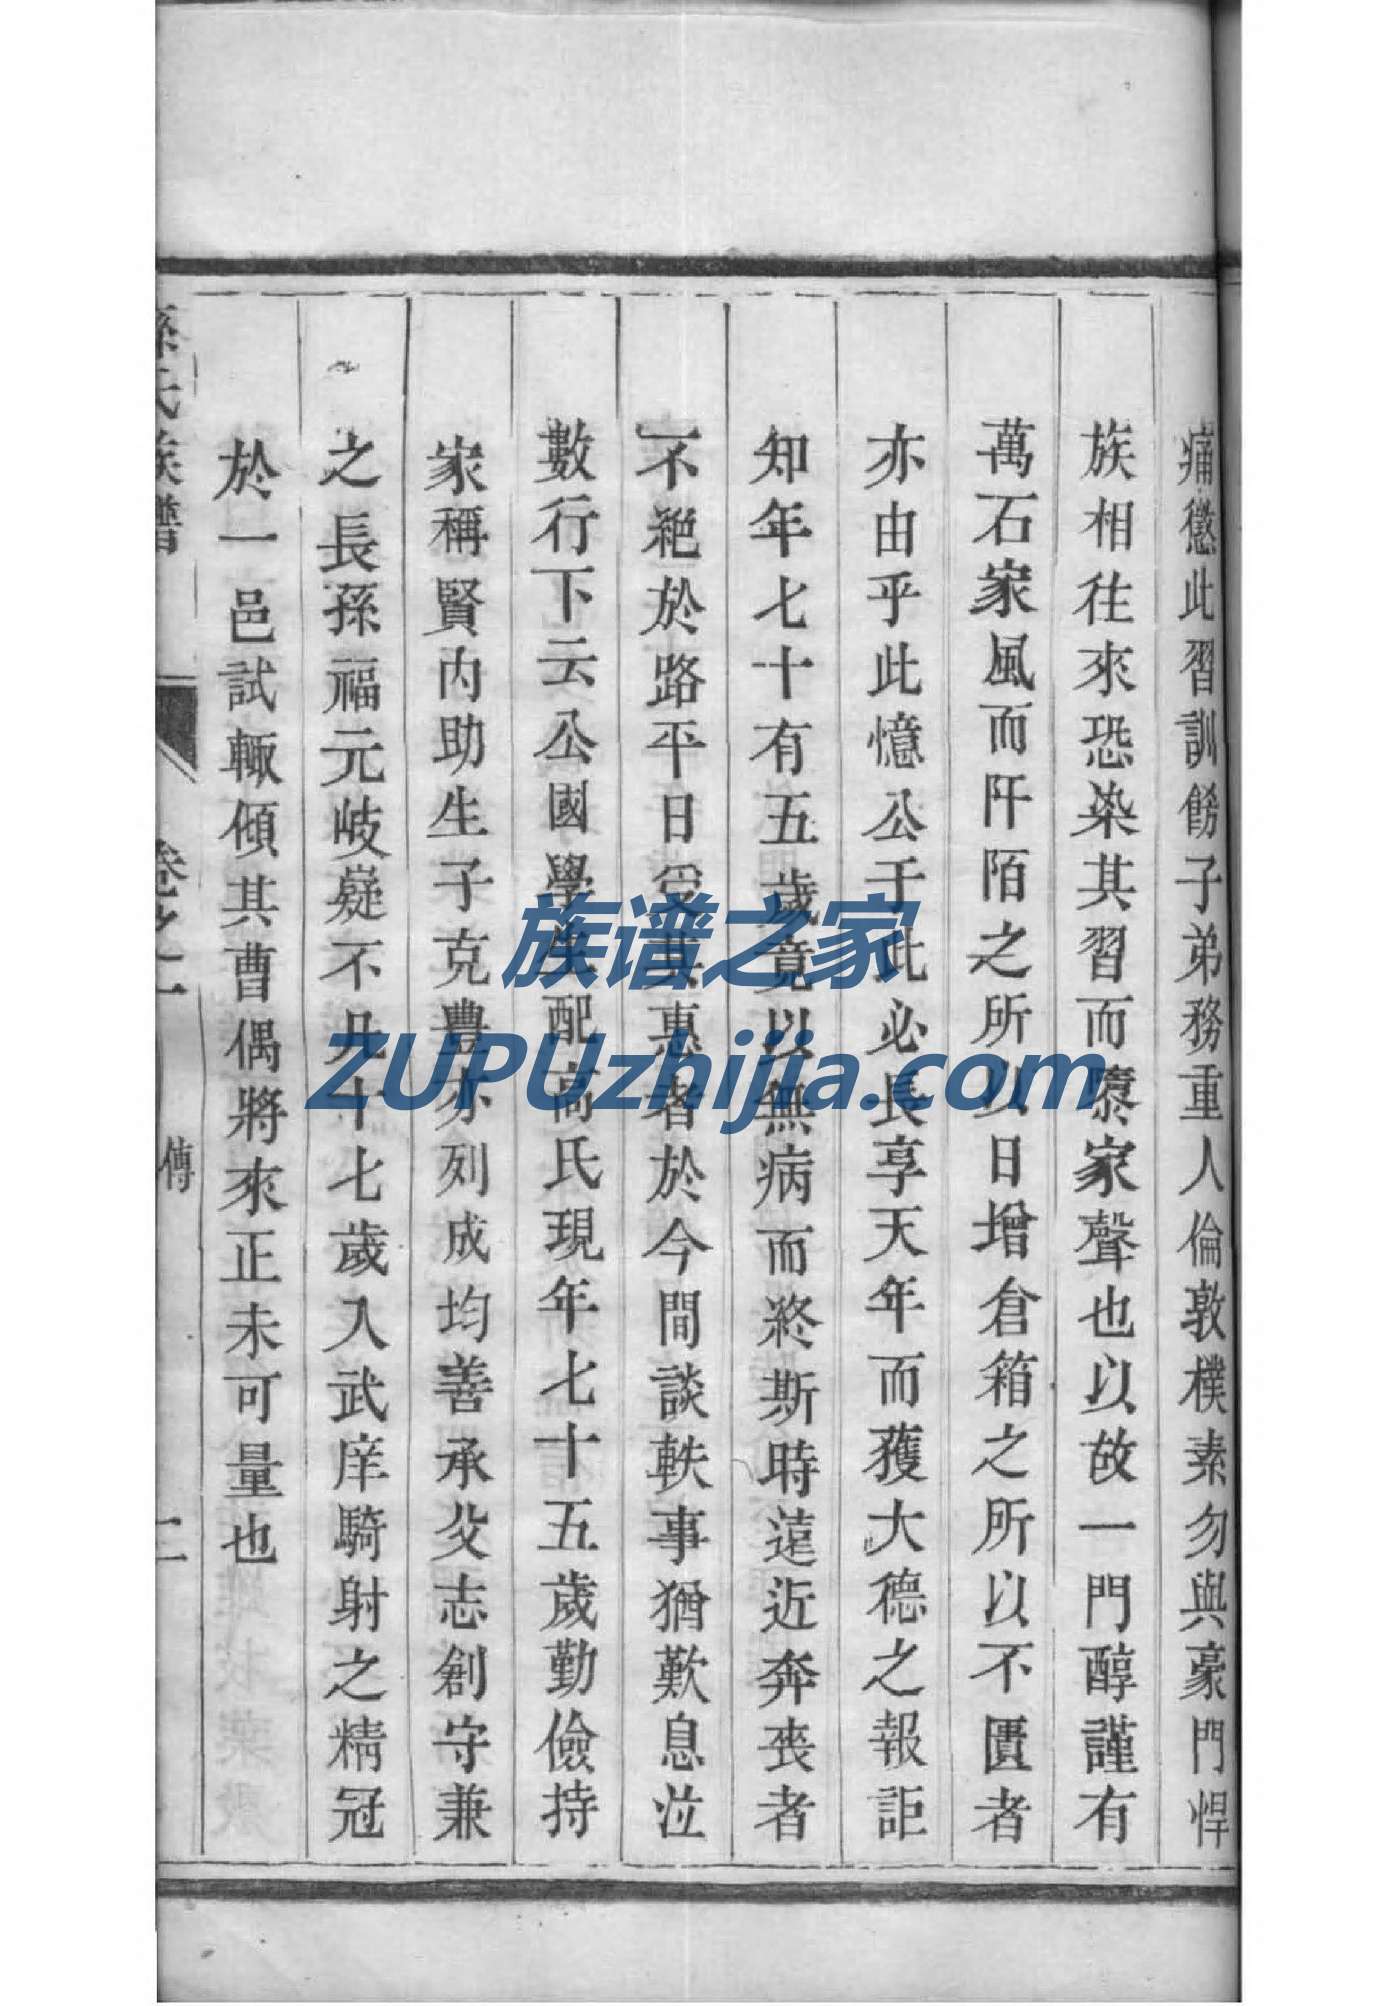 痛懲此習訓餝子弟務重人倫敦樸素勿與豪門悍
族相往來恐染其習而隳家聲也以故一門醇謹有
萬石家風而阡陌之所以日增倉箱之所以不匱者
亦由乎此憶公于此必長享天年而獲大德之報詎
知年七十有五歲竟以無病而終斯時遠近奔喪者
不絕於路平日受其惠者於今間談軼事猶歎息泣
數行下云公國學生配高氏現年七十五歲勤儉持
家稱賢內助生子克豊亦列成均善承父志創守兼
之長孫福元岐嶷不凡十七歲入武庠騎射之精冠
於一邑試輙傾其曹偶將來正未可量也
孫氏族譜
卷之二
傳
二
族谱之家
ZUPUzhijia.com